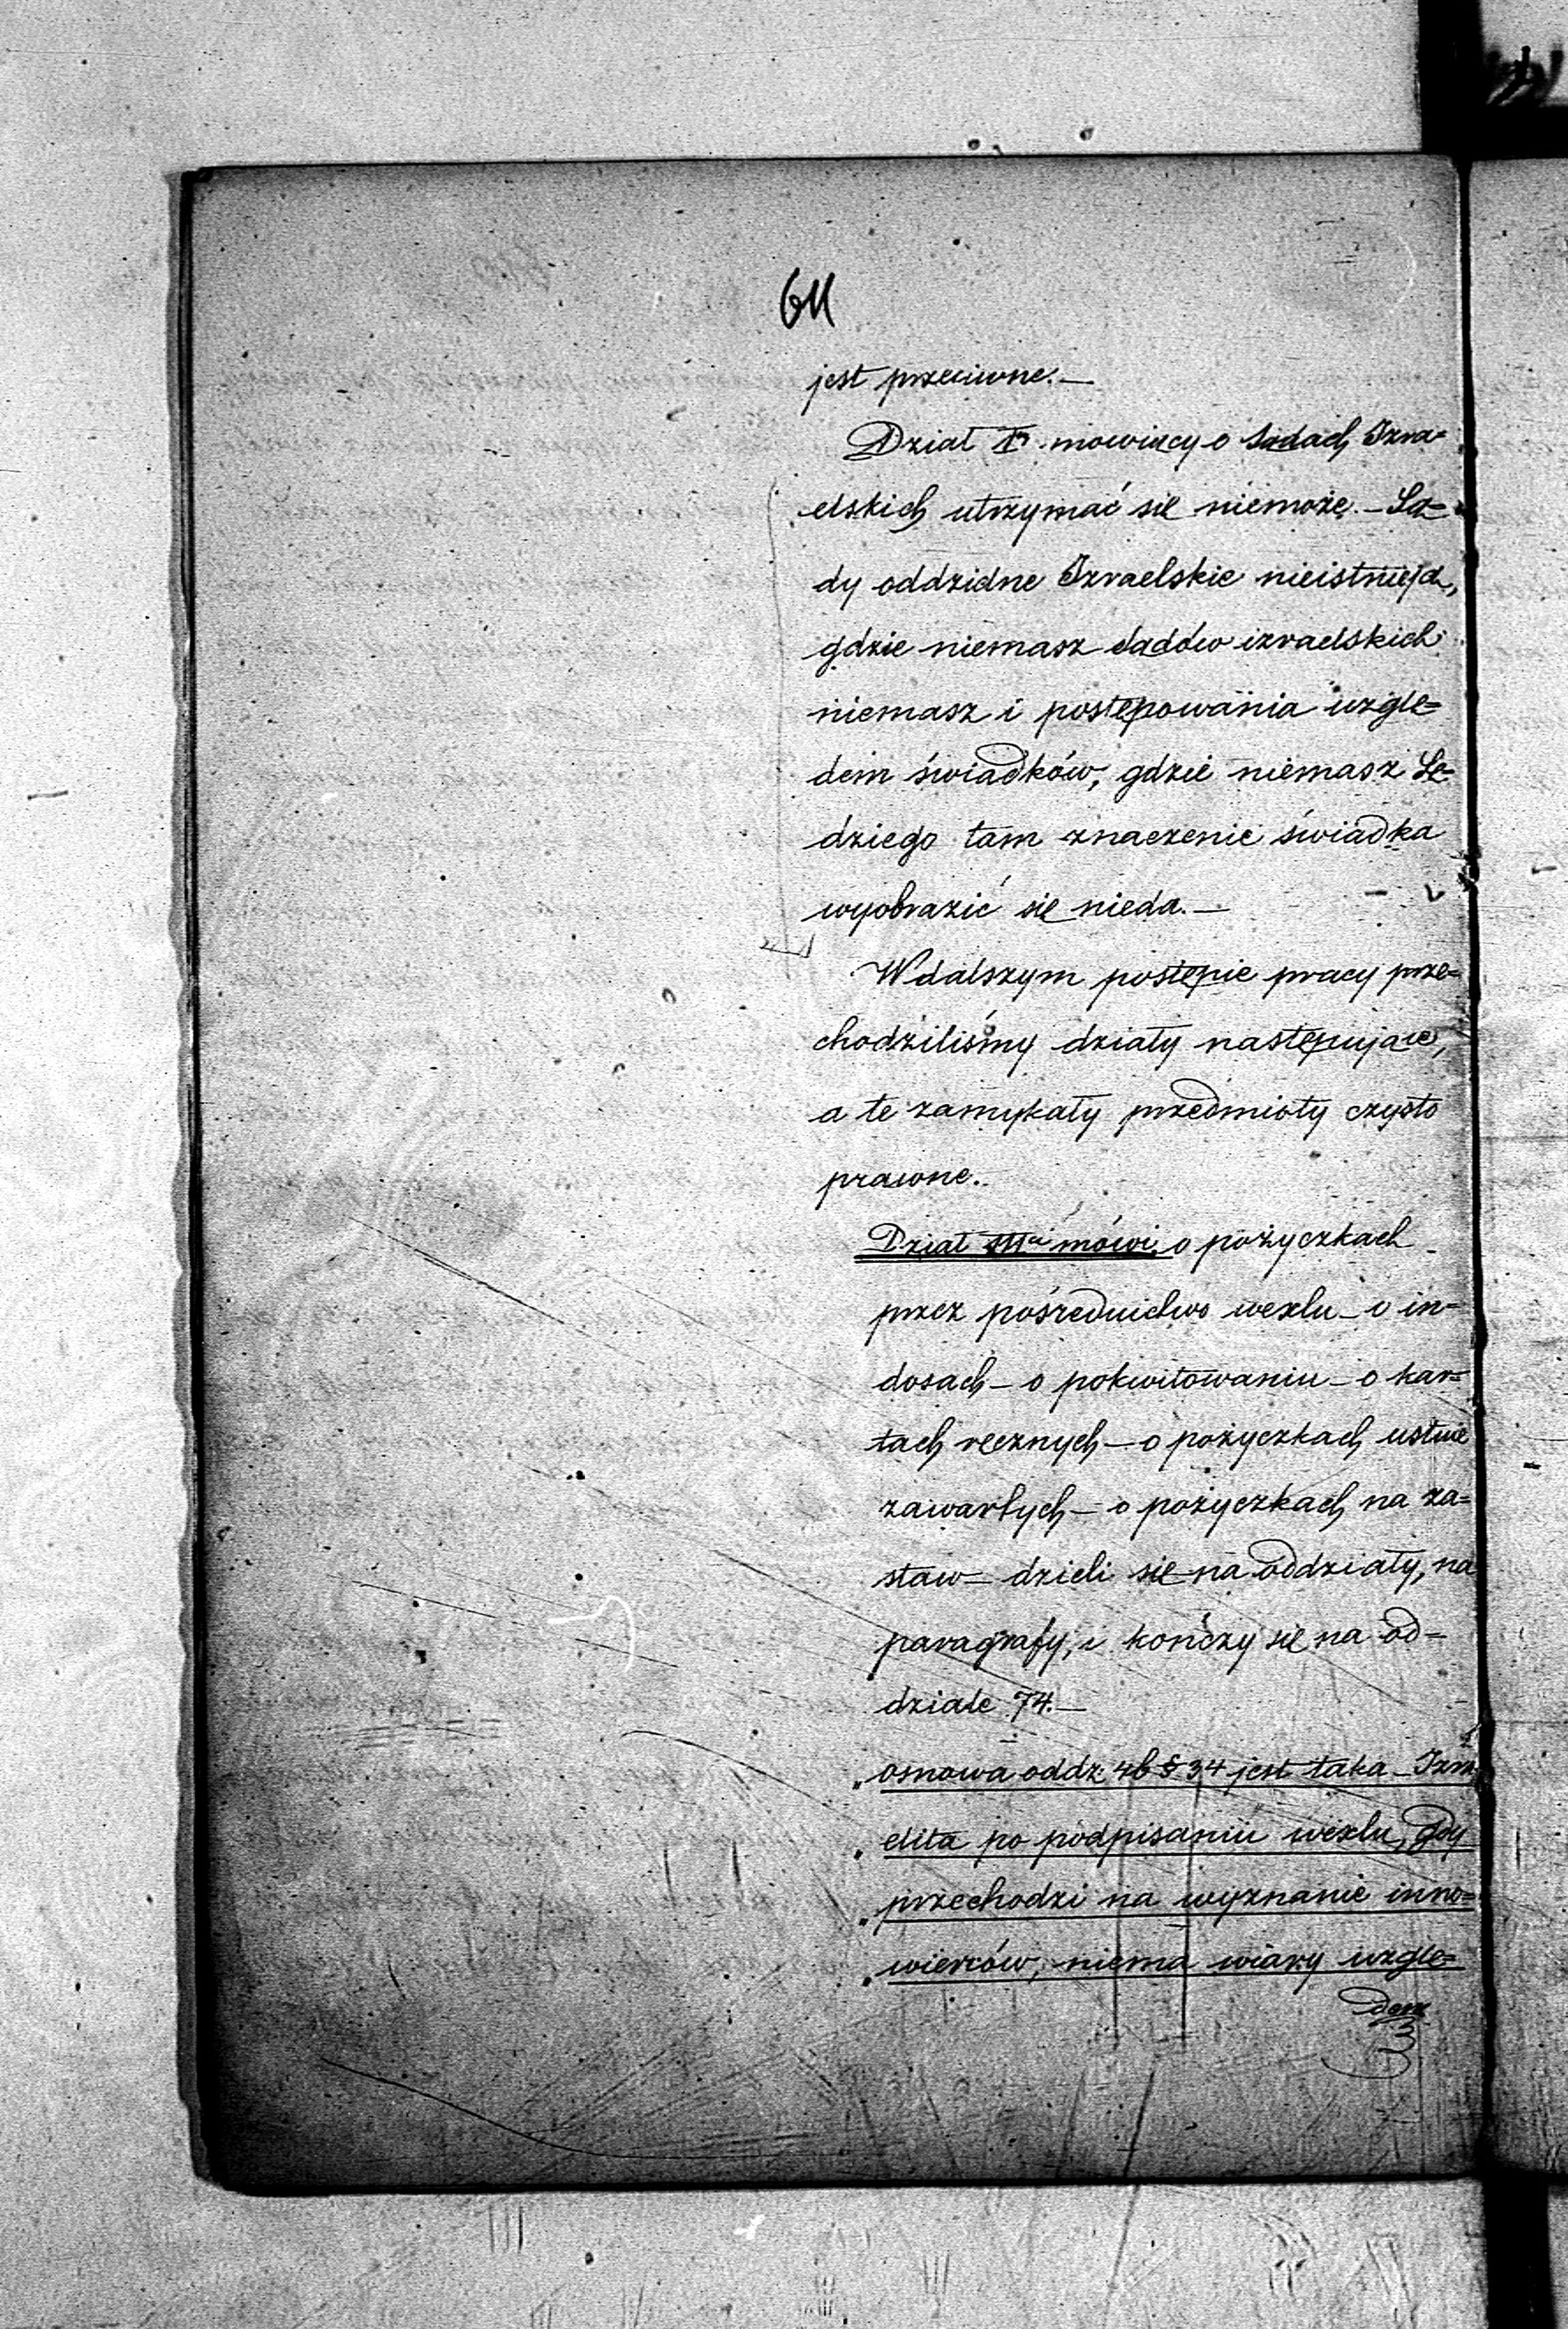 611
jest przeciwne.—
Dział I. mowiący o Sądach Izra=
elskich utrzymać się niemoże.— Są=
dy oddzidne Izraelskie nieistnieją,
gdzie niemasz sądów izraelskich
niemasz i postępowania wzglę=
dem świadków, gdzie niemasz Sę=
dziego tam znaczenie świadka
wyobrazić się nieda.—
W dalszym postępie pracy prze=
chodziliśmy działy następujące,
a te zamykały przedmioty czysto
prawne.
Dział III mówi o pożyczkach
przez pośrednictwo wexlu — o in=
dosach — o pokwitowaniu — o kar=
tach ręcznych — o pożyczkach ustnie
zawartych — o pożyczkach na za=
staw — dzieli się na oddziały, na
paragrafy, i kończy się na od=
dziale 74.—
„osnowa oddz: 46 § 34 jest taka — Izra
„elita po podpisaniu wexlu, gdy
„przechodzi na wyznanie inno=
„wierców, niema wiary wzglę=
dem